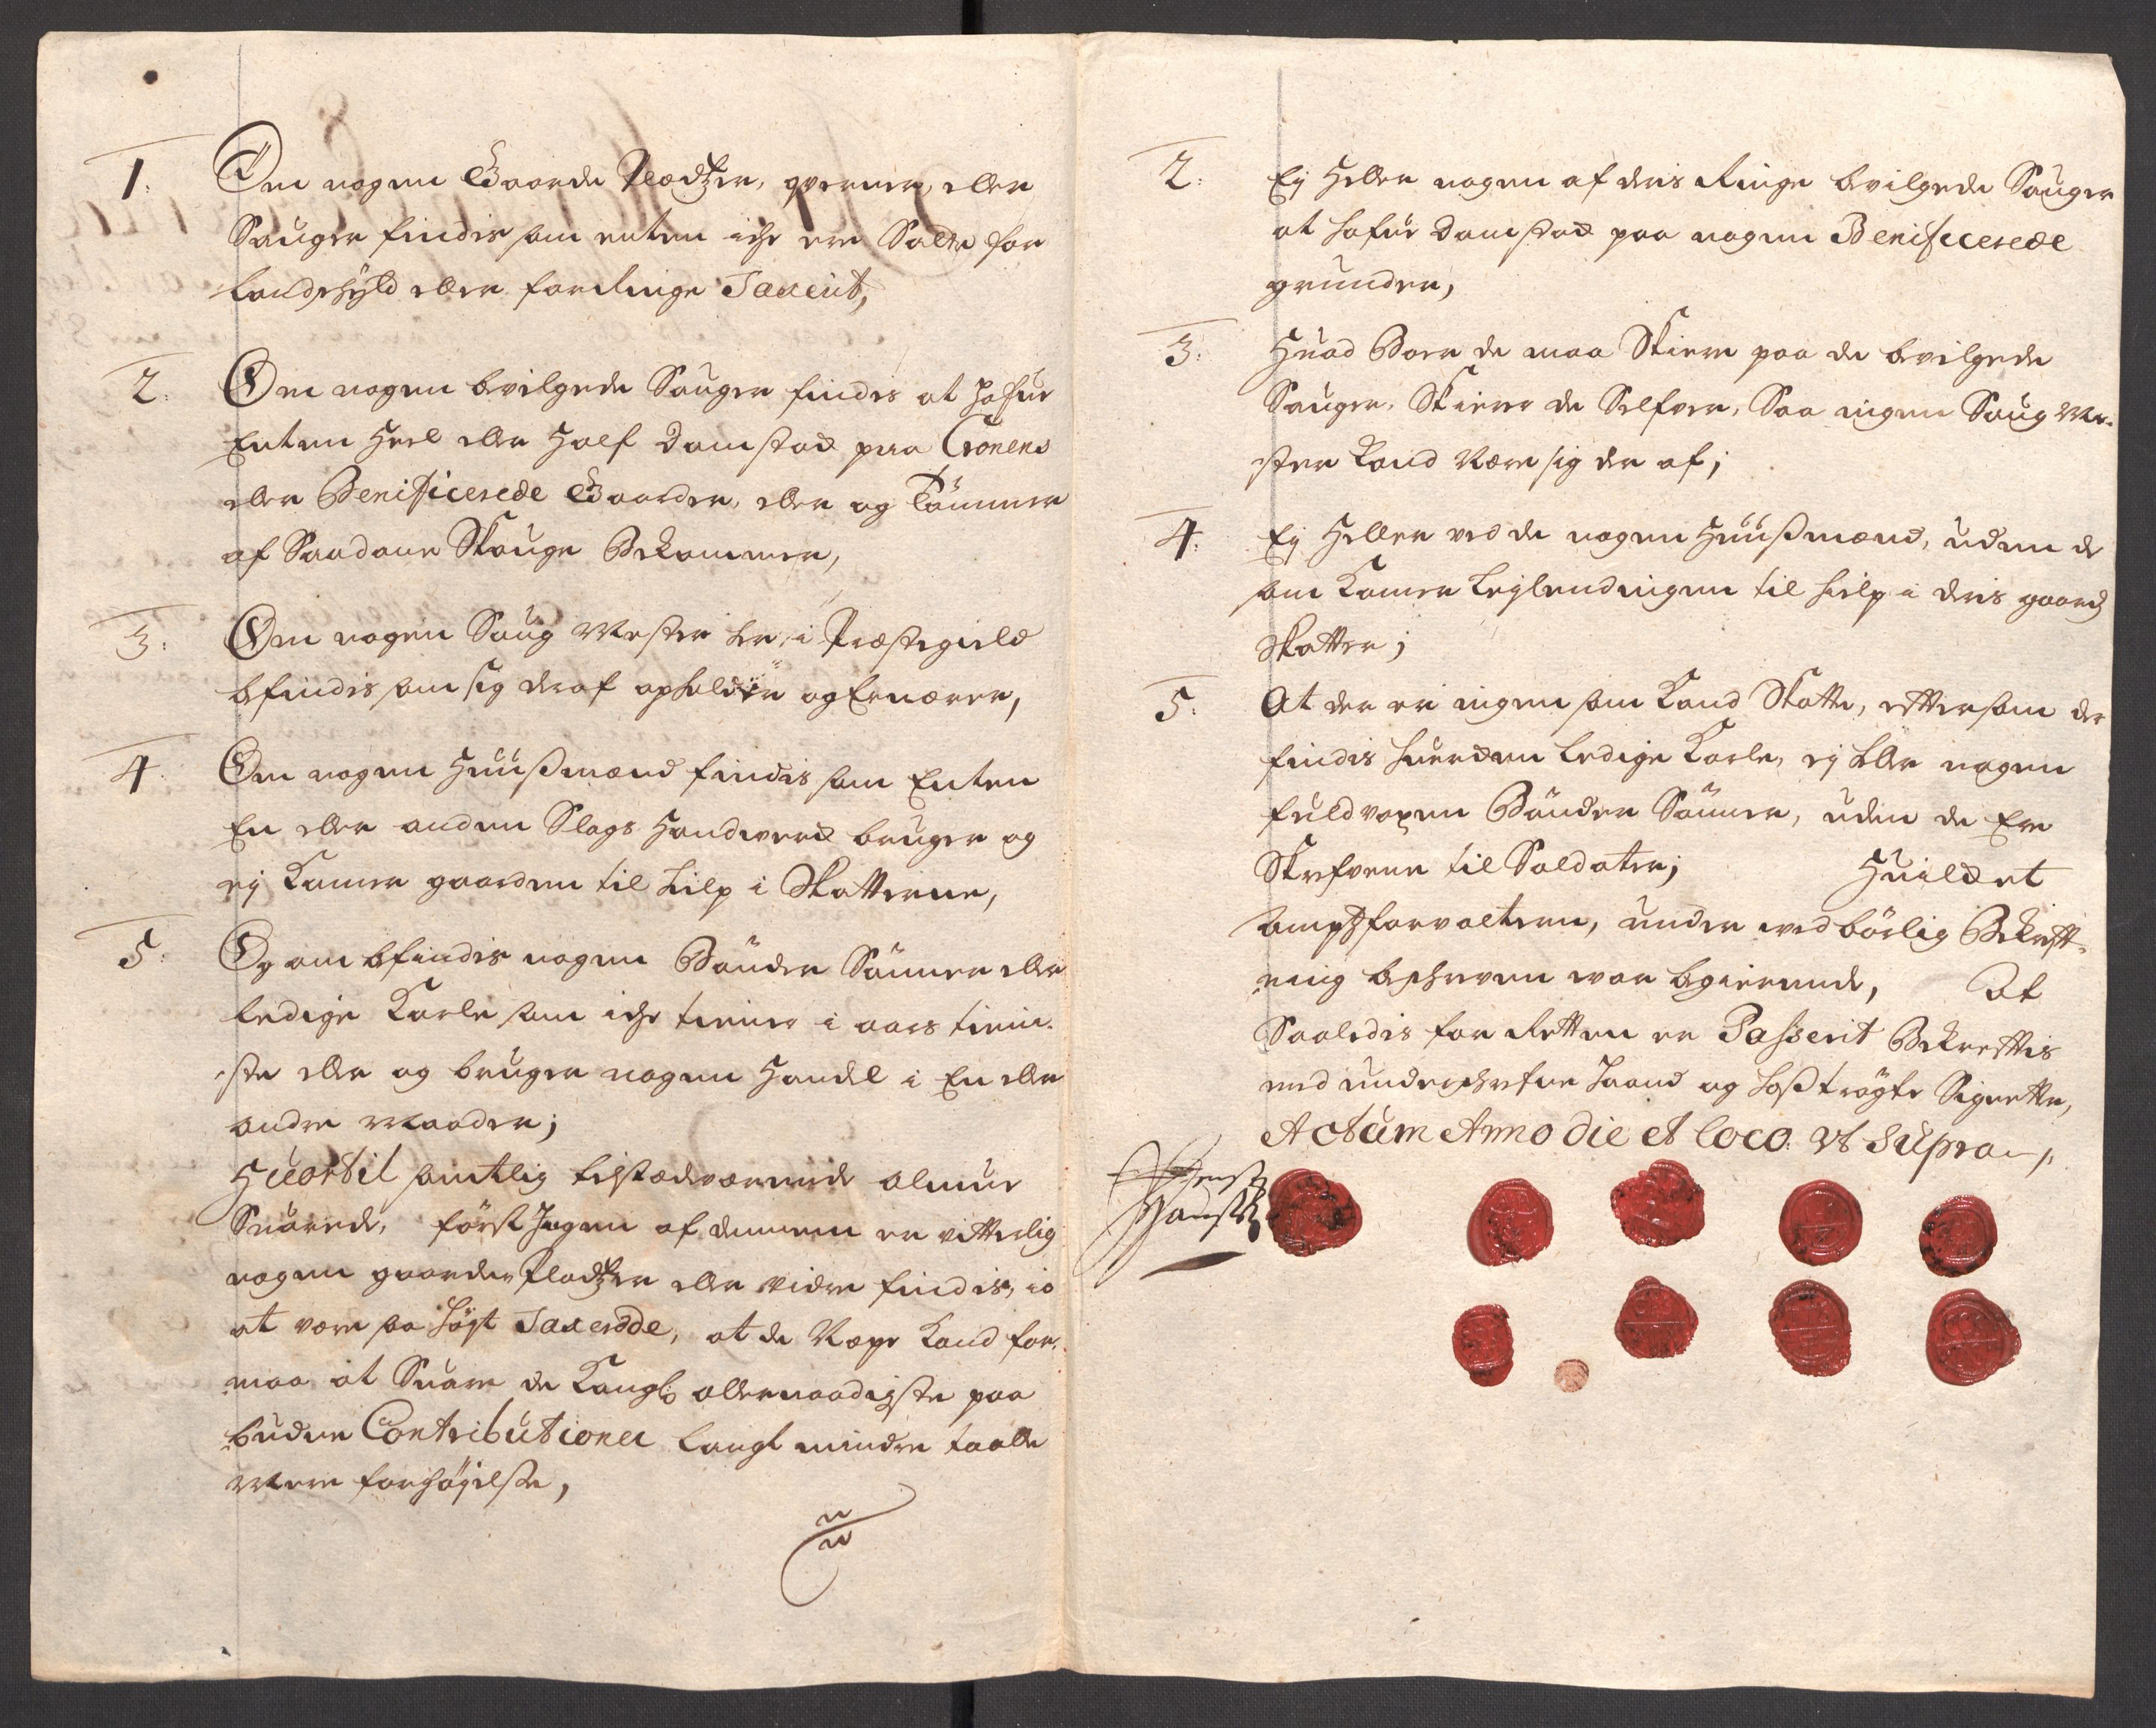 1. Om nogen Gaarde Pladtzer, qverner, eller
Sauger findis som enten iche ere Satte for
Landschyld eller for Ringe Taxerit,
2. Om nogen bevilgede Sauger findis at hafue
Enten Heel eller Half Damstod paa Cronens
eller Benificerede Gaarder, eller og Tömmer
af Saadane Skouge Bekommer,
3: Om nogen Saug Mester her i Præstegield
befindis som sig deraf opholder og Ernærer,
4. Om nogen Huusmænd findis som Enten
En eller anden Slags Handverck bruger og
ej Kommer gaarden til hielp i Skatterne,
5: Og om befindis nogen Bönder Sönner eller
Ledige Karle som iche tiener i aars tieni-
ste eller og bruger nogen Handel i En eller
anden Maader;
Huortil samtlig tilstædeværende almue
Suarede, först Ingen af dennem er vitterlig
nogen gaarder Pladtzer eller vidre findis, io
at være saa höyt Taxerede, at de Næpe Kand for-
maa at Suare de Kongl: allernaadigste paa
budne Contributioner langt mindre taale
Mere forhöyelse,
2: Ej Heller nogen af deris Ringe bevilgede Sauger
at hafue Damstod paa nogen Benificerede
grunder,
3. Huad Boer de maa Skiere paa de bevilgede
Sauger, Skierer de Selfver, Saa ingen Saug Me-
ster Kand Nære sig der af;
4. Ej Heller ved de nogen Huusmænd, uden de
som Komer Leylendingen til hielp i deris gaards
Skatter;
5. At der er ingen som Kand Skatte, efftersom der
findis huercken Ledige Karle, ej heller nogen
fuldvoxen Bönder Sönner, uden de Ere
Skrefvene til Soldater; Huilcket
Ampts forvalteren, under ved börlig Bekrefft-
ning beschreven var begierende, At
Saaledis for Retten er Passerit Bekrefftis
med underschrefne Haand og hoströgte Signetter,
Actum Anno die et loco ut supra